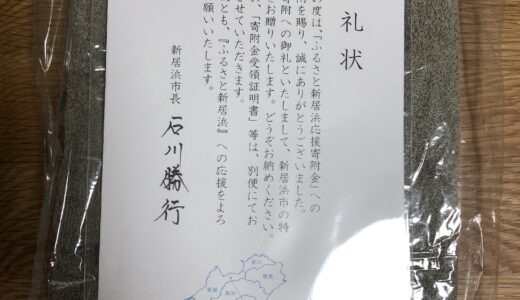 礼状
の度は、「ふるさと新居浜応援寄附金」への
附を賜り、誠にありがとうございました。
寄附への御礼といたしまして、新居浜市の特
をお贈りいたします。どうぞお納めください。
、「寄附金受領証明書」等は、別便にてお
せていただきます。
とも、『ふるさと新居浜』への応援をよろ
願いいたします。
新居浜市長 石川勝行
香川
徳島
愛媛
高知